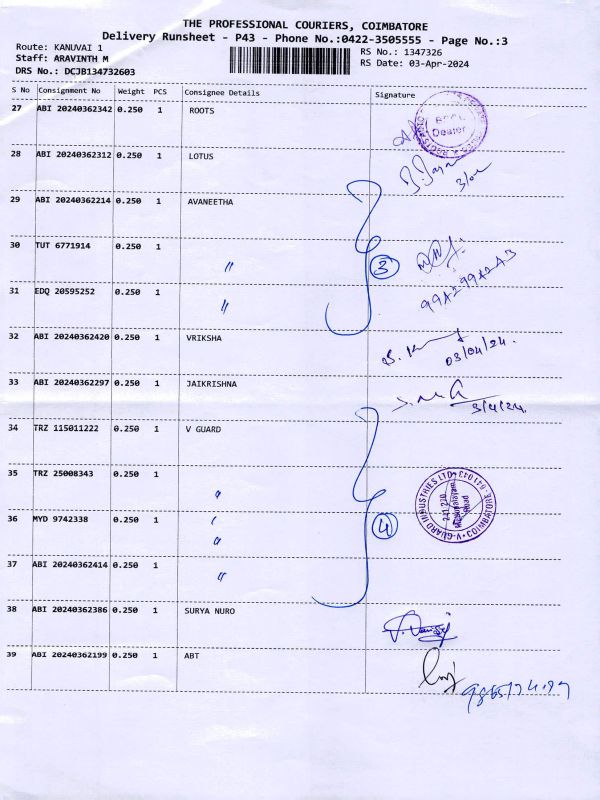 THE PROFESSIONAL COURIERS, COIMBATORE
Delivery Runsheet - P43 - Phone No.:0422-3505555 - Page No.:3
Route: KANUVAI 1
Staff: ARAVINTH M
DRS No.: DCJB134732603
RS No.: 1347326
RS Date: 03-Apr-2024
S No Consignment No Weight PCS Consignee Details Signature
27 ABI 20240362342 0.250 1 ROOTS
Dealer
28 ABI 20240362312 0.250 1 LOTUS
29 ABI 20240362214 0.250 1 AVANEETHA
30 TUT 6771914 0.250 1 〃
3
31 EDQ 20595252 0.250 1 〃
32 ABI 20240362420 0.250 1 VRIKSHA
03/04/24.
33 ABI 20240362297 0.250 1 JAIKRISHNA
3/4/24.
34 TRZ 115011222 0.250 1 V GUARD
35 TRZ 25008343 0.250 1 〃
36 MYD 9742338 0.250 1 〃
〃
4
V-GUARD INDUSTRIES LTD COIMBATORE 641 043
Road
37 ABI 20240362414 0.250 1 〃
38 ABI 20240362386 0.250 1 SURYA NURO
39 ABI 20240362199 0.250 1 ABT